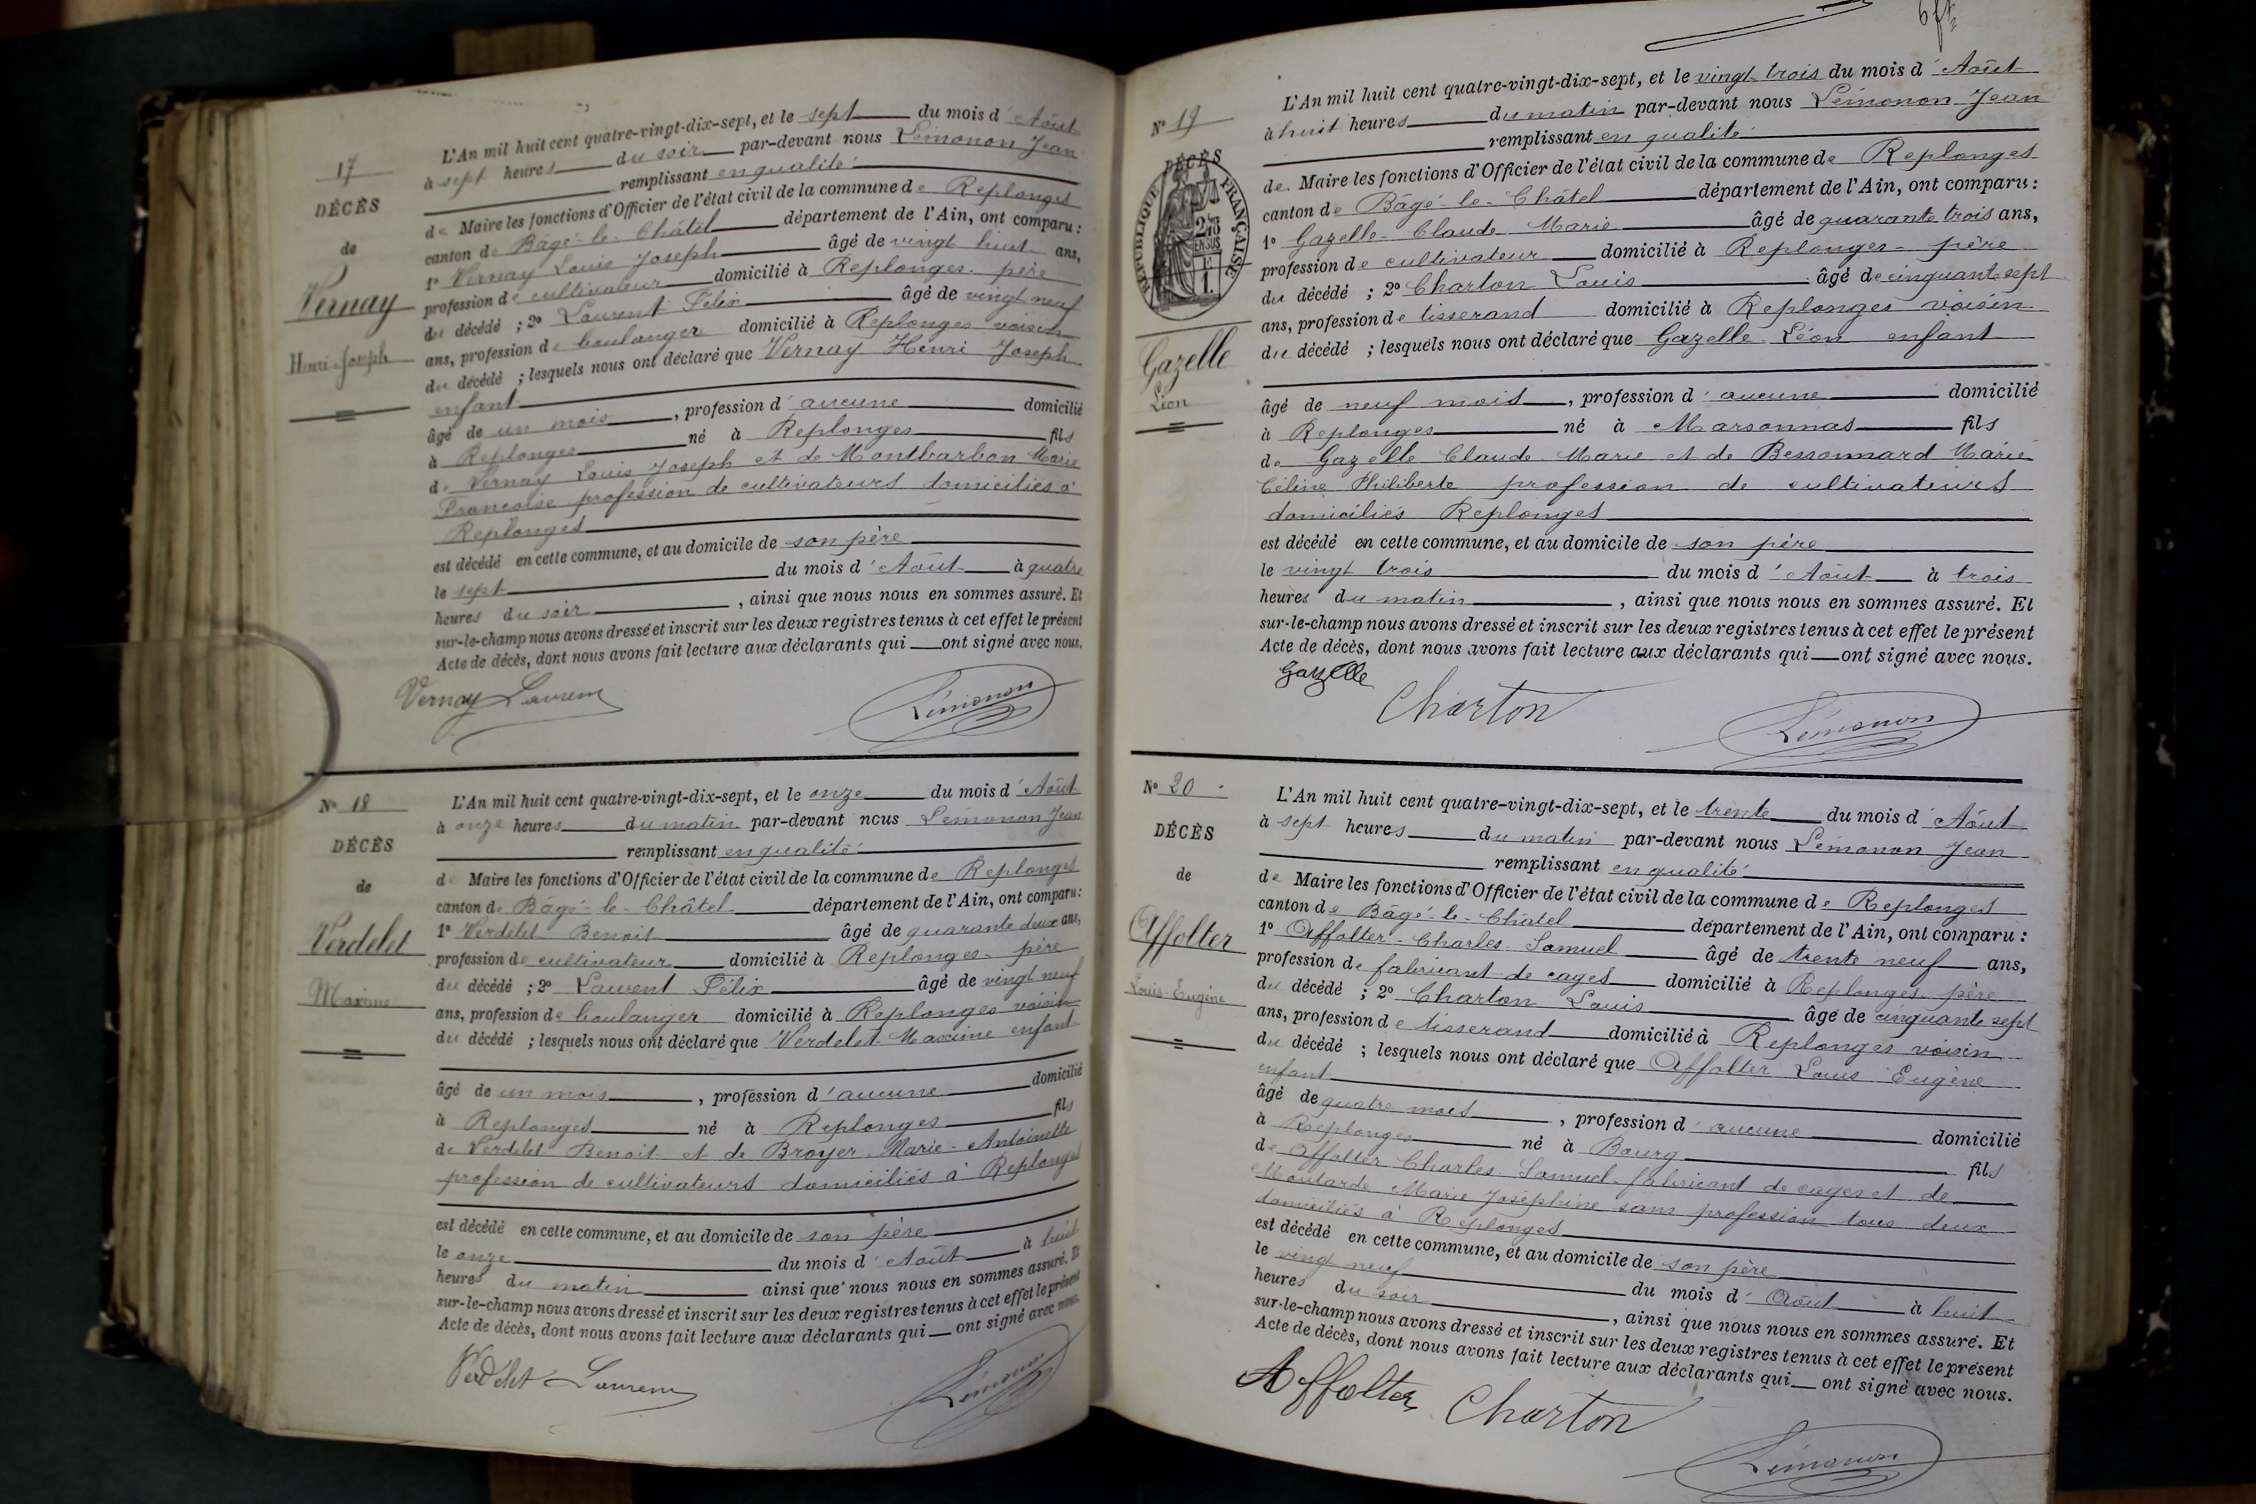 17
DÉCÈS
de
Vernay
Henri-Joseph
L'An mil huit cent quatre-vingt-dix-sept, et le sept du mois d'Août
à sept heures du soir par-devant nous Lémonon Jean
remplissant en qualité
de Maire les fonctions d'Officier de l'état civil de la commune de Replonges
canton de Bâgé-le-Châtel département de l'Ain, ont comparu :
1º Vernay Louis Joseph âgé de vingt huit ans,
profession de cultivateur domicilié à Replonges père
du décédé ; 2º Laurent Félix âgé de vingt neuf
ans, profession de boulanger domicilié à Replonges voisin
du décédé ; lesquels nous ont déclaré que Vernay Henri Joseph
enfant
âgé de un mois, profession d'aucune domicilié
à Replonges né à Replonges fils
de Vernay Louis Joseph et de Montbarbon Marie
Françoise profession de cultivateurs domiciliés à
Replonges
est décédé en cette commune, et au domicile de son père
le sept du mois d'Août à quatre
heures du soir, ainsi que nous nous en sommes assuré. Et
sur-le-champ nous avons dressé et inscrit sur les deux registres tenus à cet effet le présent
Acte de décès, dont nous avons fait lecture aux déclarants qui ont signé avec nous.
Vernay Laurent Lémonon
Nº 18
DÉCÈS
de
Verdelet
Maxime
L'An mil huit cent quatre-vingt-dix-sept, et le onze du mois d'Août
à onze heures du matin par-devant nous Lémonon Jean
remplissant en qualité
de Maire les fonctions d'Officier de l'état civil de la commune de Replonges
canton de Bâgé-le-Châtel département de l'Ain, ont comparu :
1º Verdelet Benoit âgé de quarante deux ans,
profession de cultivateur domicilié à Replonges père
du décédé ; 2º Laurent Félix âgé de vingt neuf
ans, profession de boulanger domicilié à Replonges voisin
du décédé ; lesquels nous ont déclaré que Verdelet Maxime enfant
âgé de un mois, profession d'aucune domicilié
à Replonges né à Replonges fils
de Verdelet Benoit et de Broyer Marie-Antoinette
profession de cultivateurs domiciliés à Replonges
est décédé en cette commune, et au domicile de son père
le onze du mois d'Août à huit
heures du matin ainsi que nous nous en sommes assuré. Et
sur-le-champ nous avons dressé et inscrit sur les deux registres tenus à cet effet le présent
Acte de décès, dont nous avons fait lecture aux déclarants qui ont signé avec nous.
Verdelet Laurent Lémonon
Nº 19
DÉCÈS
RÉPUBLIQUE FRANÇAISE
Gazelle
Léon
L'An mil huit cent quatre-vingt-dix-sept, et le vingt trois du mois d'Août
à huit heures du matin par-devant nous Lémonon Jean
remplissant en qualité
de Maire les fonctions d'Officier de l'état civil de la commune de Replonges
canton de Bâgé-le-Châtel département de l'Ain, ont comparu :
1º Gazelle Claude Marie âgé de quarante trois ans,
profession de cultivateur domicilié à Replonges père
du décédé ; 2º Charton Louis âgé de cinquante sept
ans, profession de tisserand domicilié à Replonges voisin
du décédé ; lesquels nous ont déclaré que Gazelle Léon enfant
âgé de neuf mois, profession d'aucune domicilié
à Replonges né à Marsonnas fils
de Gazelle Claude Marie et de Bessonnard Marie
Céline Philiberte profession de cultivateurs
domiciliés Replonges
est décédé en cette commune, et au domicile de son père
le vingt trois du mois d'Août à trois
heures du matin, ainsi que nous nous en sommes assuré. Et
sur-le-champ nous avons dressé et inscrit sur les deux registres tenus à cet effet le présent
Acte de décès, dont nous avons fait lecture aux déclarants qui ont signé avec nous.
Gazelle Charton Lémonon
Nº 20
DÉCÈS
de
Affolter
Louis-Eugène
L'An mil huit cent quatre-vingt-dix-sept, et le trente du mois d'Août
à sept heures du matin par-devant nous Lémonon Jean
remplissant en qualité
de Maire les fonctions d'Officier de l'état civil de la commune de Replonges
canton de Bâgé-le-Châtel département de l'Ain, ont comparu :
1º Affolter Charles Samuel âgé de trente neuf ans,
profession de fabricant de cages domicilié à Replonges père
du décédé ; 2º Charton Louis âgé de cinquante sept
ans, profession de tisserand domicilié à Replonges voisin
du décédé ; lesquels nous ont déclaré que Affolter Louis Eugène
enfant
âgé de quatre mois, profession d'aucune domicilié
à Replonges né à Bourg fils
de Affolter Charles Samuel fabricant de cages et de
Moutarde Marie Joséphine sans profession tous deux
domiciliés à Replonges
est décédé en cette commune, et au domicile de son père
le vingt neuf du mois d'Août à huit
heures du soir, ainsi que nous nous en sommes assuré. Et
sur-le-champ nous avons dressé et inscrit sur les deux registres tenus à cet effet le présent
Acte de décès, dont nous avons fait lecture aux déclarants qui ont signé avec nous.
Affolter Charton Lémonon